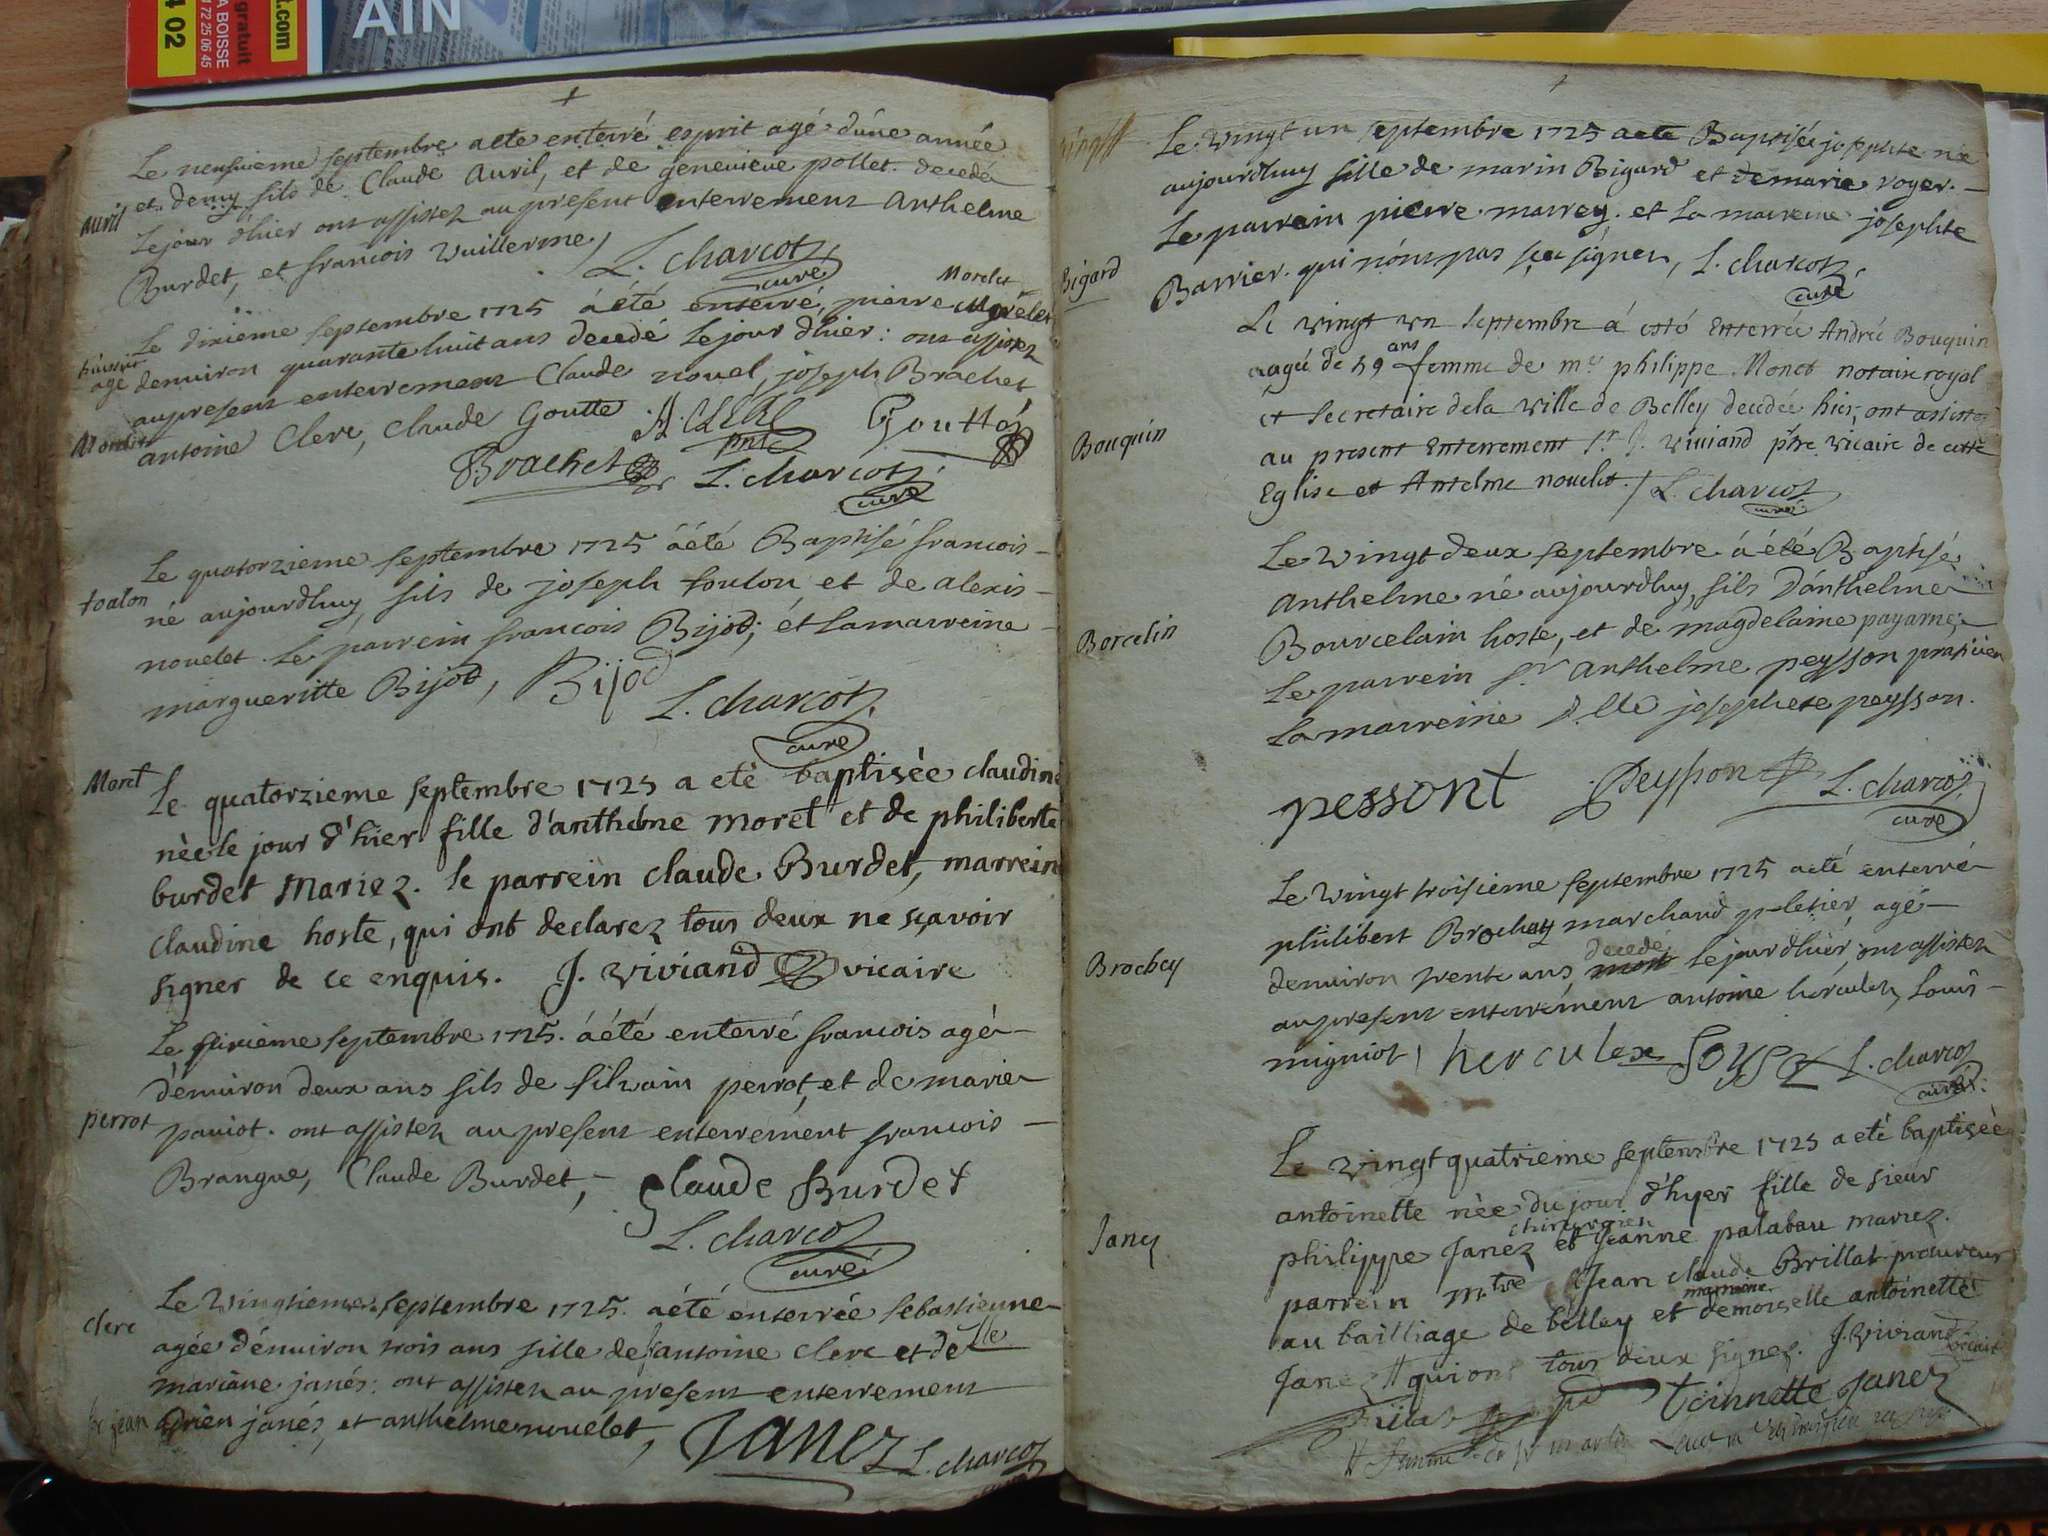 AIN
4 02
A BOISSE
72 25 06 45
gratuit
t.com
Le neusvieme septembre a ete enterré esprit agé d'une année
et demy fils de Claude Avril, et de genevieve pollet. decedé
Avril
Le jour d'hier ont assistez au present enterrement Anthelme
Burdet, et francois Vuillerme / L. Charcot
curé
Morelet
Le dixieme septembre 1725 à été enterré, pierre
agé denviron quarante huit ans decedé Le jour d'hier : ont assistez
au present enterrement Claude novel, joseph Brachet
antoine Clerc, Claude Goutte A. CLERC Goutte
Brachet L. Charcot
curé
Le quatorzieme septembre 1725 à été Baptisé francois
toulon
né aujourdhuy, fils de joseph toulon, et de alexis
novelet. Le parrein francois Bijod; et la marreine
margueritte Bijod, Bijod
L. Charcot
curé
Moret
Le quatorzieme septembre 1725 a eté baptisée claudine
née le jour d'hier fille d'anthelme moret et de philiberte
burdet Mariez. le parrein claude Burdet, marreine
claudine hoste, qui ont declarez tous deux ne sçavoir
signer de ce enquis. J. Viviand vicaire
Le sixieme septembre 1725. à été enterré francois agé
d'enuiron deux ans fils de siluain perrot, et de marie
perrot
paviot. ont assistez au present enterrement francois
Brangue, Claude Burdet, Claude Burdet
L. Charcot
curé
Clerc
Le Vingtieme septembre 1725. à été enterrée sebastienne
agée d'enuiron trois ans fille de Sr antoine Clerc et de Dlle
mariane janés: ont assistez au present enterrement
Sr jean adrien janés, et anthelme novelet, Janez L. Charcot
Le Vingt un septembre 1725 a eté Baptisée josephte née
aujourdhuy fille de marin Bigard et de marie royer.
Le parrein pierre marrey. et La marreine josephte
Bigard
Barrier. qui n'ont pas sçeu signer, L. Charcot
curé
Le vingt un septembre á esté Enterrée Andrée Bouquin
aagée de 59 ans femme de me philippe Monet notaire royal
Bouquin
et secretaire de la ville de Belley decedée hier, ont assisté
au present Enterrement Sr J. Viviand ptre vicaire de cette
Eglise et Antelme nouelet. / L. Charcot
curé
Le Vingt deux septembre à été Baptisé
Anthelme né aujourdhuy, fils D'anthelme
Borcelin
Bourcelain hoste, et de magdelaine payarne
Le parrein Sr Anthelme peysson praticien
La marreine D.lle josephte peysson.
pessont Peysson L. Charcot
curé
Le Vingt troisieme septembre 1725 a été enterré
philibert Brochey marchand peletier, agé
Brochey
denuiron trente ans decedé le jour d'hier, ont assistez
au present enterrement antoine hercules, Louis
migniot, herculex L. Charcot
curé
Le vingt quatrieme septembre 1725 a eté baptisée
antoinette née du jour d'hyer fille de sieur
Janez
philippe Janez chirurgien et Jeanne palabau mariez.
parrein mtre Jean claude Brillat procureur
au bailliage de belley et marreine demoiselle antoinette
Janez # qui ont tous deux signez. J. Viviand vicaire
Brillat toinnette Janez